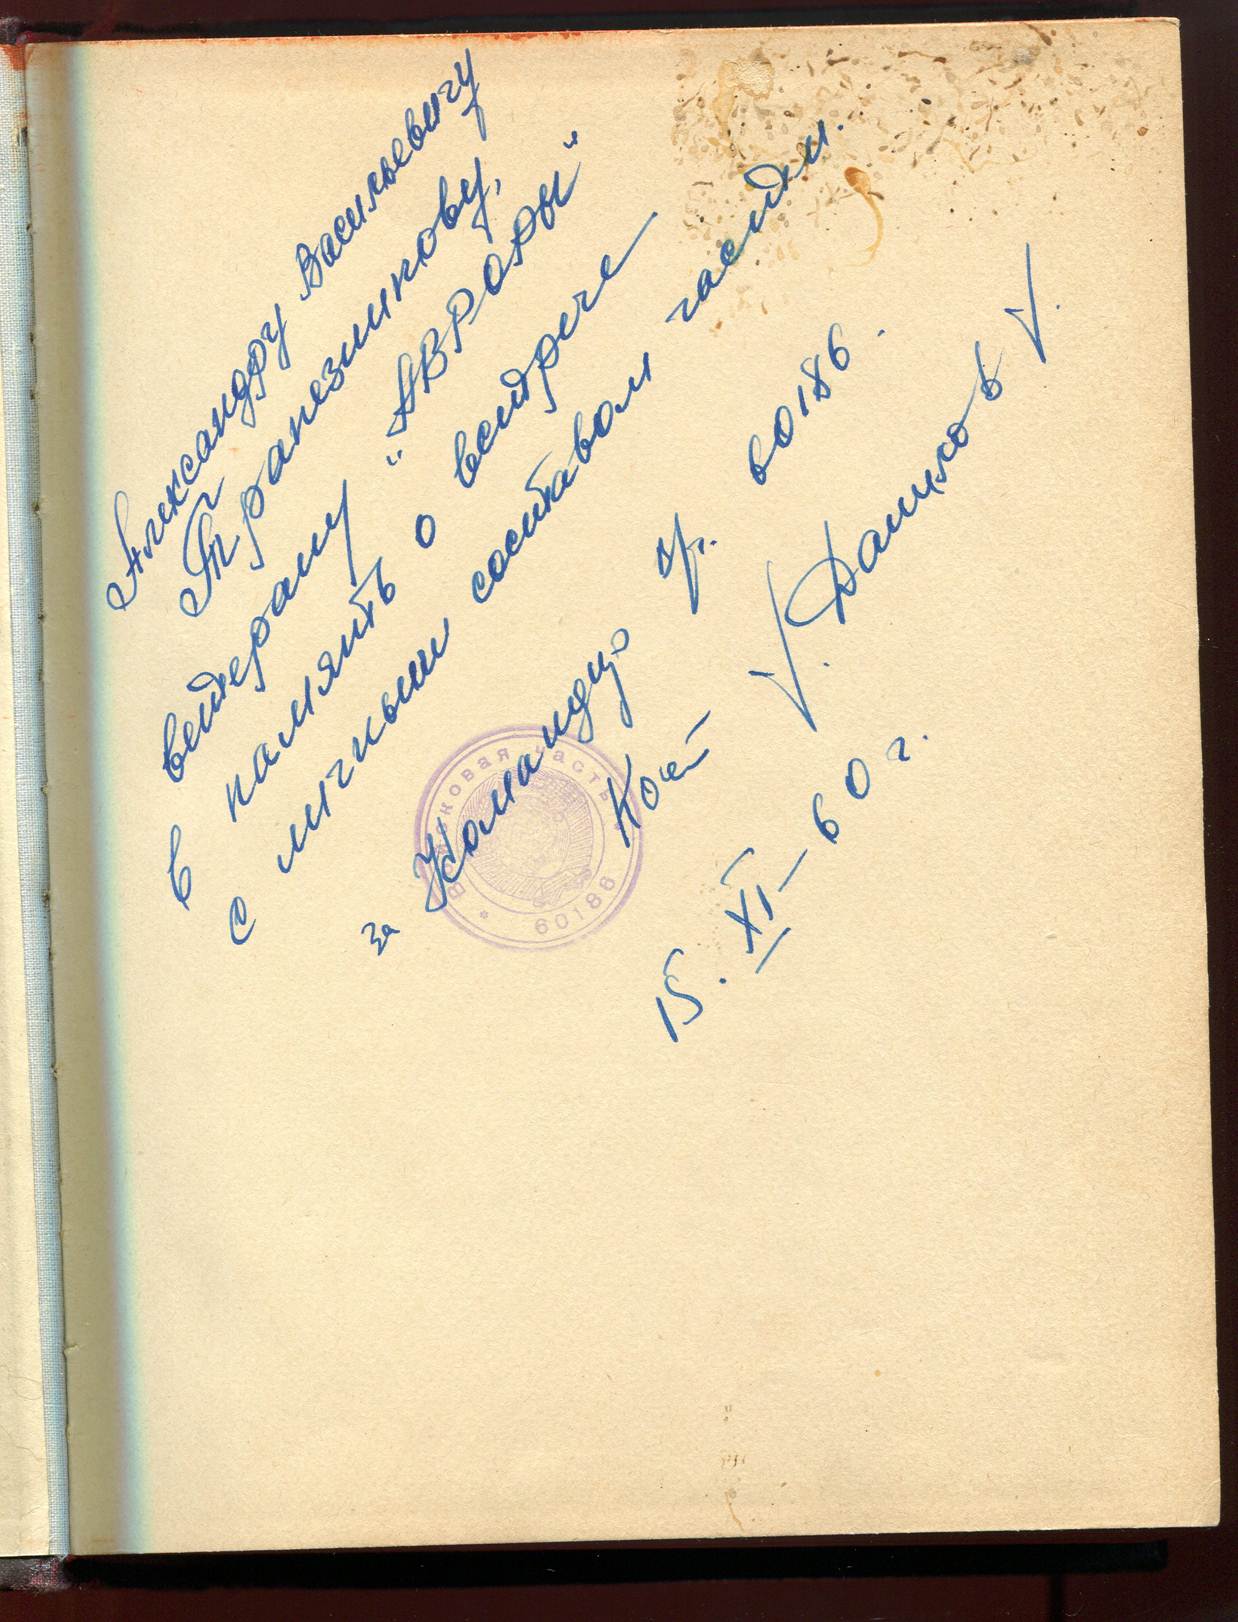 Александру Васильевичу
Трапезникову,
ветерану „АВРОРЫ“
в память о встрече
с личным составом части.
за Командир 60186.
Дашков
15. XI – 60 г.
Войсковая часть
* 60186